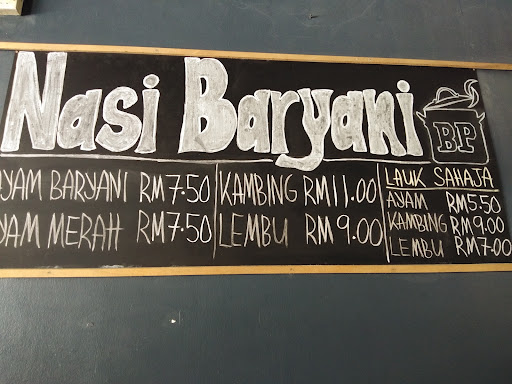 Nasi Baryani
BP
AYAM BARYANI RM 7.50
AYAM MERAH RM 7.50
KAMBING RM 11.00
LEMBU RM 9.00
LAUK SAHAJA
AYAM RM 5.50
KAMBING RM 9.00
LEMBU RM 7.00